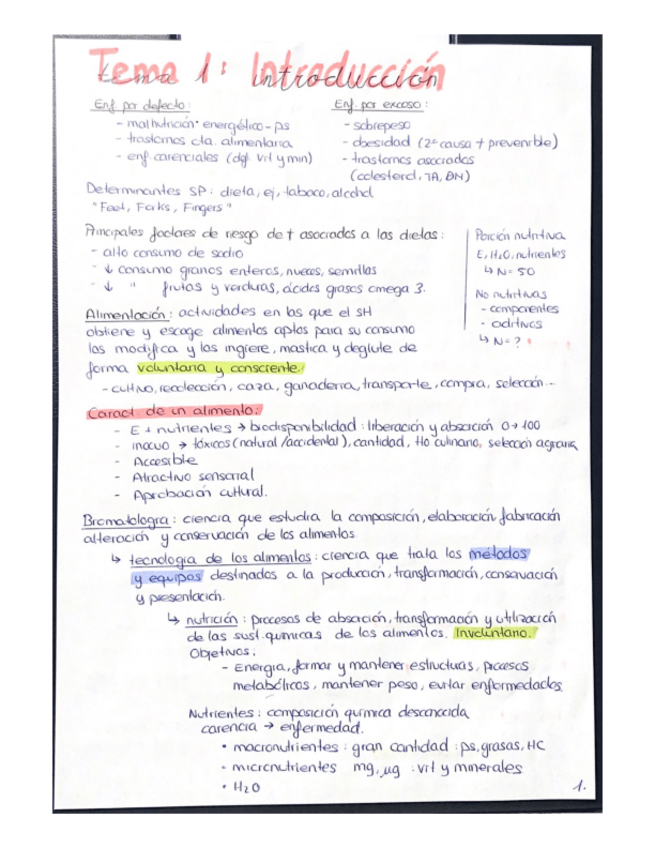 Tema 1: Introducción
Enf. por defecto:
- malnutrición energético-ps
- trastornos cta. alimentaria
- enf. carenciales (dgf. vit y min)
Enf. por exceso:
- sobrepeso
- obesidad (2ª causa † prevenible)
- trastornos asociados
(colesterol, TA, DM)
Determinantes SP: dieta, ej, tabaco, alcohol
"Feet, Forks, Fingers"
Principales factores de riesgo de † asociados a las dietas:
- alto consumo de sodio
- ↓ consumo granos enteros, nueces, semillas
- ↓ " frutas y verduras, ácidos grasos omega 3.
Porción nutritiva
E, H2O, nutrientes
↳ N= 50
No nutritivas
- componentes
- aditivos
↳ N= ?
Alimentación: actividades en las que el SH
obtiene y escoge alimentos aptos para su consumo
los modifica y los ingiere, mastica y deglute de
forma voluntaria y consciente.
- cultivo, recolección, caza, ganadería, transporte, compra, selección...
Caract de un alimento:
- E + nutrientes → biodisponibilidad: liberación y absorción 0→100
- inocuo → tóxicos (natural/accidental), cantidad, tto culinario, selección agraria
- Accesible
- Atractivo sensorial
- Aprobación cultural.
Bromatología: ciencia que estudia la composición, elaboración, fabricación
alteración y conservación de los alimentos
↳ tecnología de los alimentos: ciencia que trata los métodos
y equipos destinados a la producción, transformación, conservación
y presentación.
↳ nutrición: procesos de absorción, transformación y utilización
de las sust. químicas de los alimentos. Involuntario.
Objetivos:
- Energía, formar y mantener estructuras, procesos
metabólicos, mantener peso, evitar enfermedades
Nutrientes: composición química desconocida
carencia → enfermedad.
• macronutrientes: gran cantidad: ps, grasas, HC
• micronutrientes mg, µg: vit y minerales
• H2O
1.